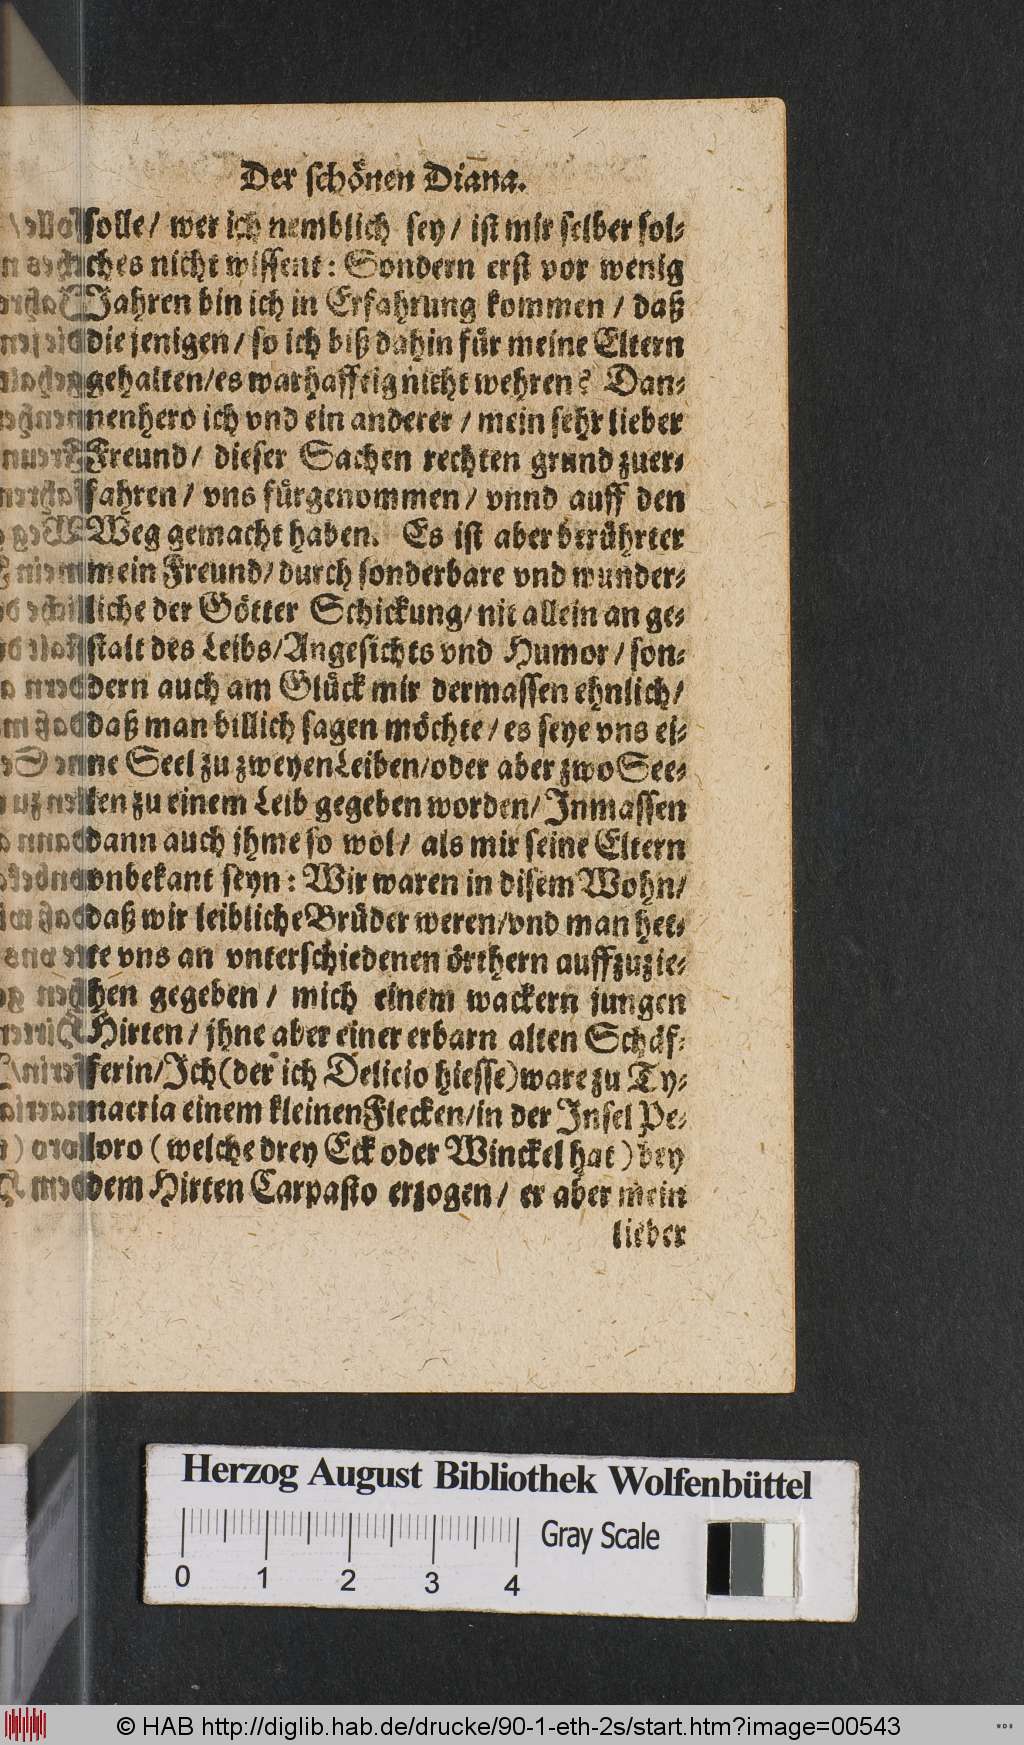 Der schönen Diana.
solle/ wer ich nemblich sey/ ist mir selber sol-
ches nicht wissent: Sondern erst vor wenig
Jahren bin ich in Erfahrung kommen / daß
die jenigen/ so ich biß dahin für meine Eltern
gehalten/es warhafftig nicht wehren? Dan-
nenhero ich vnd ein anderer / mein sehr lieber
Freund/ dieser Sachen rechten grund zuer-
fahren/ vns fürgenommen/ vnnd auff den
Weg gemacht haben. Es ist aber berührter
mein Freund/ durch sonderbare vnd wunder-
liche der Götter Schickung/ nit allein an ge-
stalt des Leibs/Angesichts vnd Humor/ son-
dern auch am Glück mir dermassen ehnlich/
daß man billich sagen möchte/ es seye vns ei-
ne Seel zu zweyen Leiben/oder aber zwo See-
len zu einem Leib gegeben worden/ Inmassen
dann auch jhme so wol/ als mir seine Eltern
vnbekant seyn: Wir waren in disem Wohn/
daß wir leibliche Brüder weren/vnd man het-
te vns an vnterschiedenen örthern auffzuzie-
hen gegeben/ mich einem wackern jungen
Hirten/ jhne aber einer erbarn alten Schäf-
ferin/Ich (der ich Delicio hiesse) ware zu Ty-
nacria einem kleinen Flecken/in der Insel Pe-
loro (welche drey Eck oder Winckel hat) bey
dem Hirten Carpasto erzogen/ er aber mein
lieber
Herzog August Bibliothek Wolfenbüttel
0 1 2 3 4 Gray Scale
© HAB http://diglib.hab.de/drucke/90-1-eth-2s/start.htm?image=00543